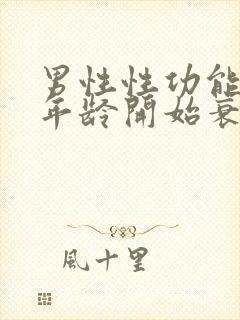 男性性功能
年龄開始衰
風十里